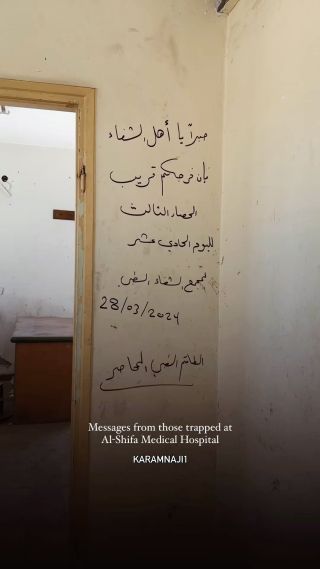 صبراً يا أهل الشفاء
بأن فرجكم قريب
الحصار الثالث
لليوم الحادي عشر
لمجمع الشفاء الطبي
28/03/2024
الطاقم الطبي المحاصر
Messages from those trapped at
Al-Shifa Medical Hospital
KARAMNAJI1